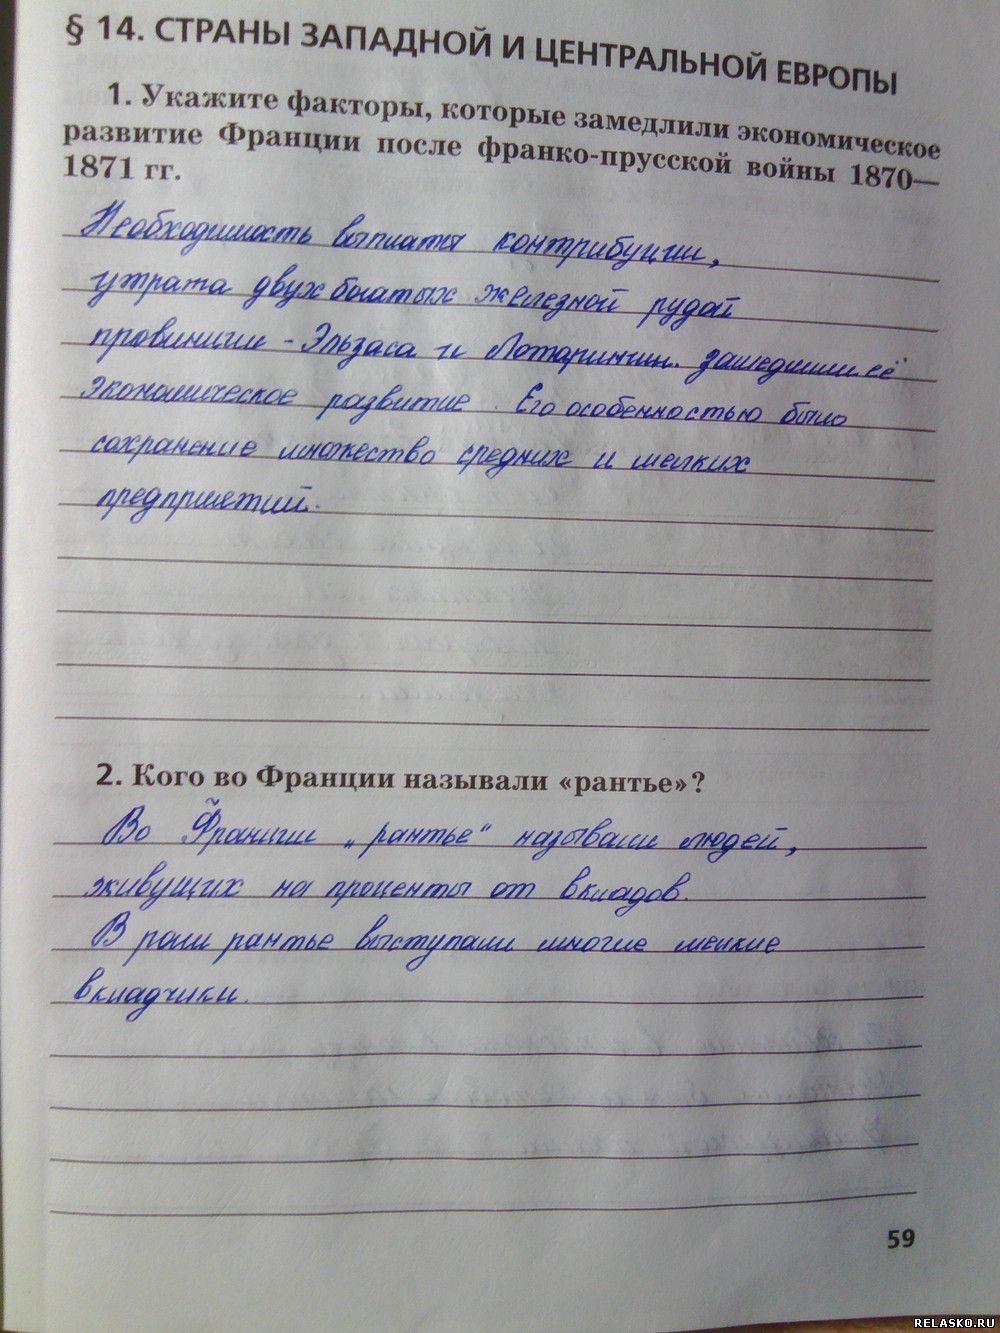 § 14. СТРАНЫ ЗАПАДНОЙ И ЦЕНТРАЛЬНОЙ ЕВРОПЫ
1. Укажите факторы, которые замедлили экономическое
развитие Франции после франко-прусской войны 1870—
1871 гг.
Необходимость выплаты контрибуции,
утрата двух богатых железной рудой
провинции - Эльзаса и Лотарингии. замедлили её
экономическое развитие. Его особенностью было
сохранение множество средних и мелких
предприятий.
2. Кого во Франции называли «рантье»?
Во Франции „рантье" называли людей,
живущих на проценты от вкладов.
В роли рантье выступали многие мелкие
вкладчики.
59
RELASKO.RU